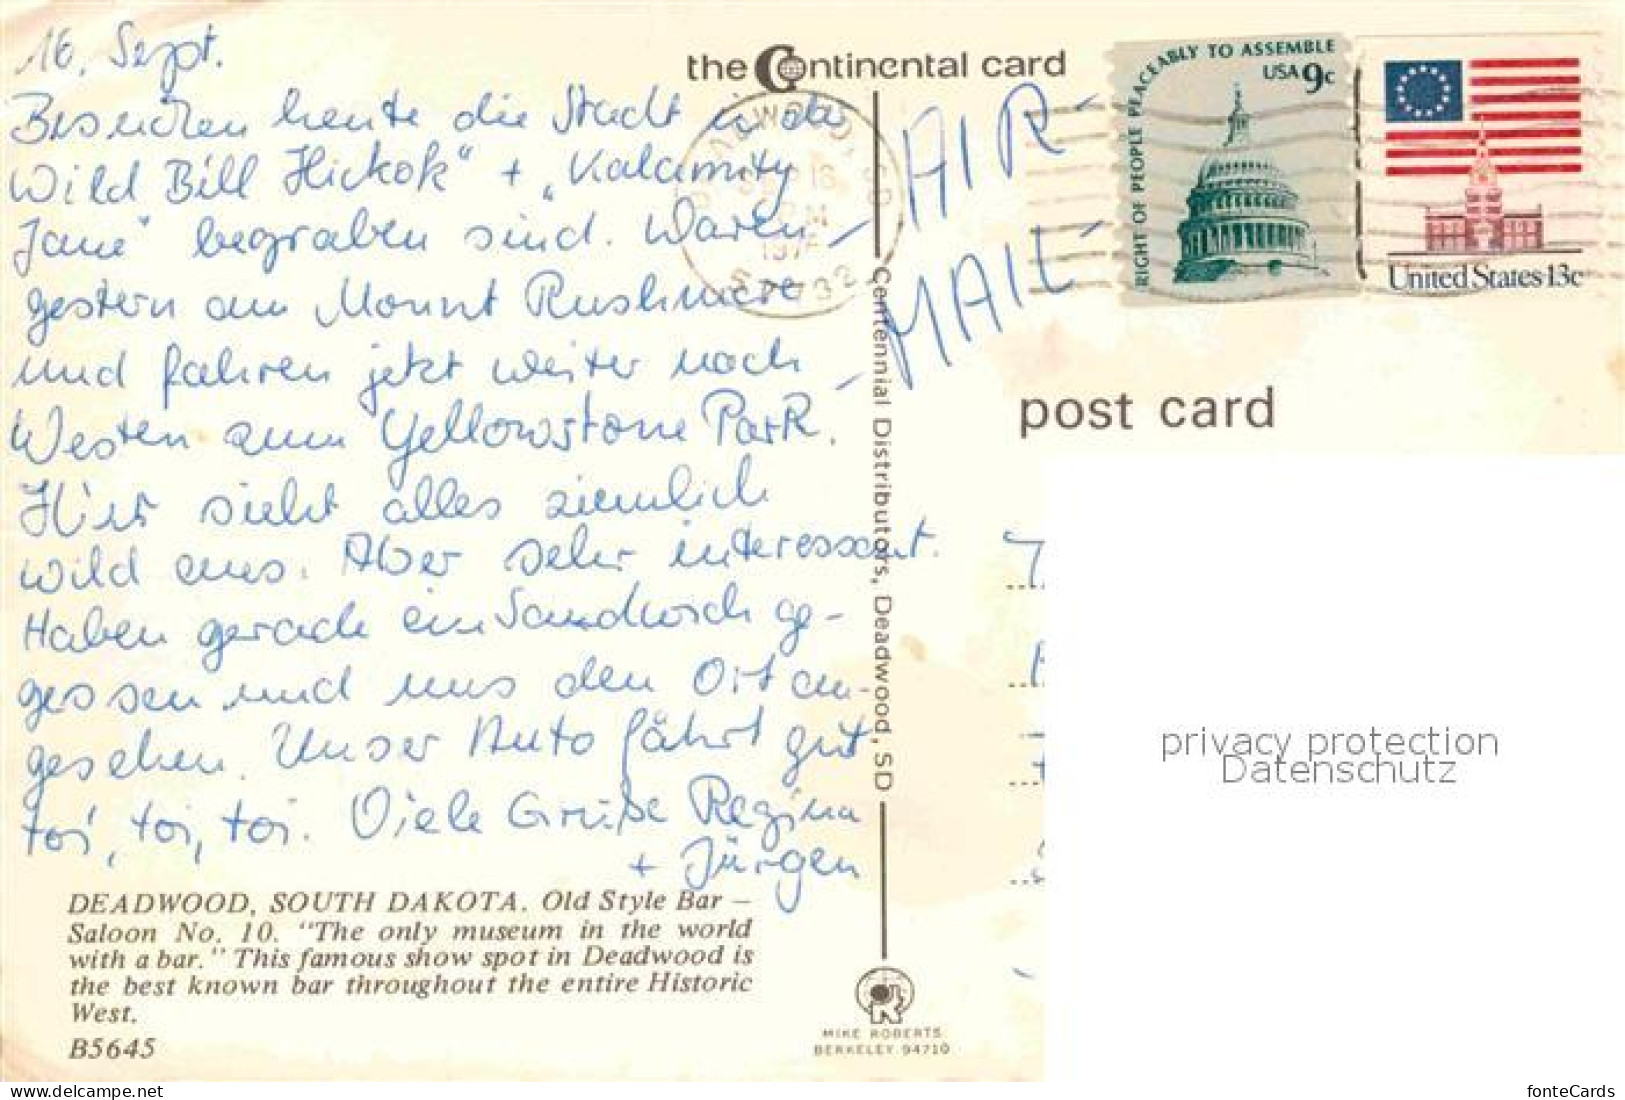 16. Sept.
Besuchen heute die Stadt in der
Wild Bill Hickok" + "Kalamity
Jane" begraben sind. Waren
gestern am Mount Rushmore
und fahren jetzt weiter nach
Westen zum Yellowstone Park.
Hier sieht alles ziemlich
wild aus. Aber sehr interessant.
Haben gerade ein Sandwich ge-
gessen und uns den Ort an-
gesehen. Unser Auto fährt gut
toi, toi, toi. Viele Grüße Regina
+ Jürgen
DEADWOOD, SOUTH DAKOTA. Old Style Bar –
Saloon No. 10. "The only museum in the world
with a bar." This famous show spot in Deadwood is
the best known bar throughout the entire Historic
West.
B5645
the Continental card
DEADWOOD, SD
SEP 16
PM
57732
AIR-
MAIL-
Centennial Distributors, Deadwood, SD
MIKE ROBERTS
BERKELEY 94710
RIGHT OF PEOPLE PEACEABLY TO ASSEMBLE
USA 9c
United States 13c
post card
privacy protection
Datenschutz
fonteCards